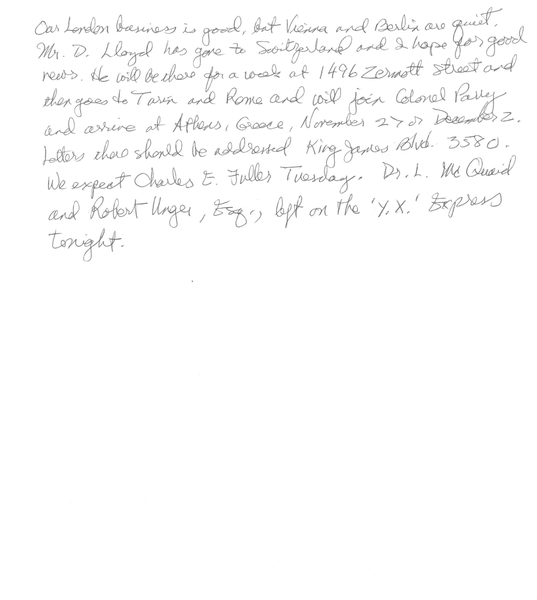 Our London business is good, but Vienna and Berlin are quiet.
Mr. D. Lloyd has gone to Switzerland and I hope for good
news. He will be there for a week at 1496 Zermott Street and
then goes to Turin and Rome and will join Colonel Parry
and arrive at Athens, Greece, November 27 or December 2.
Letters there should be addressed King James Blvd. 3580.
We expect Charles E. Fuller Tuesday. Dr. L. McQuaid
and Robert Unger, Esq., left on the 'Y.X.' Express
tonight.